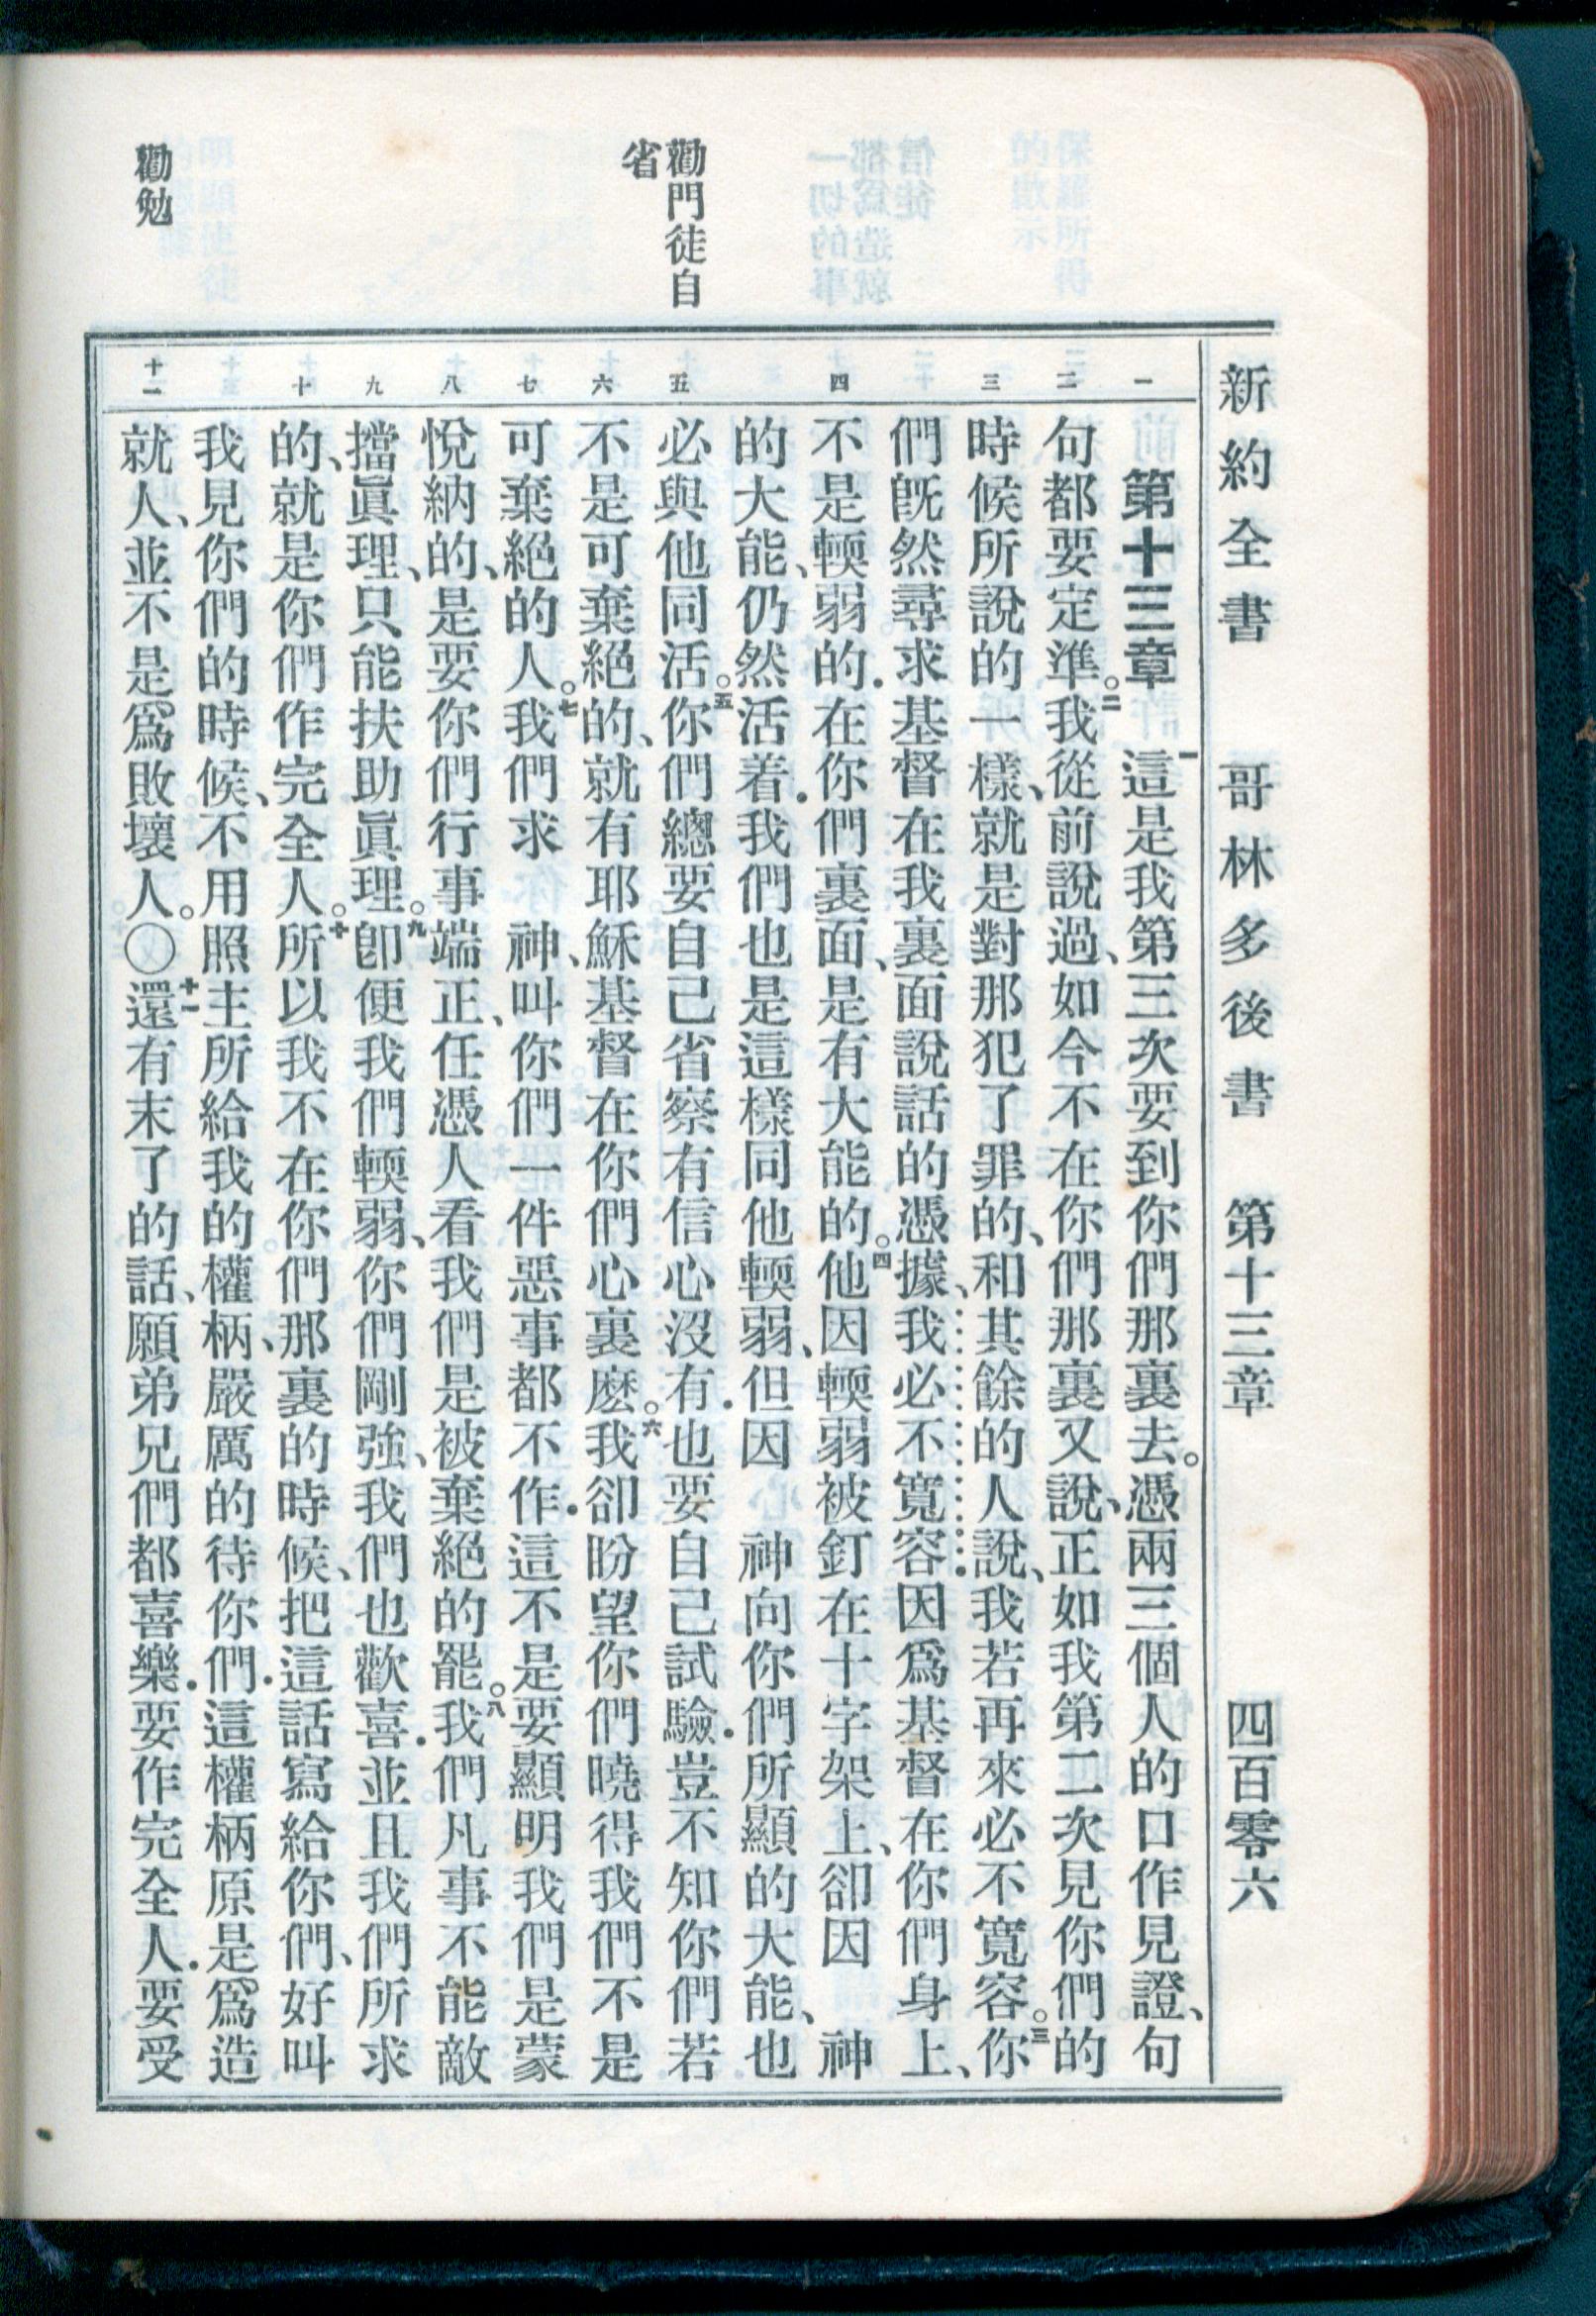 新約全書　哥林多後書　第十三章　四百零六
勸門徒自
省
勸勉
一
二
三
四
五
六
七
八
九
十
十一
第十三章　一這是我第三次要到你們那裏去。憑兩三個人的口作見證、句
句都要定準。二我從前說過、如今不在你們那裏又說、正如我第二次見你們的
時候所說的一樣、就是對那犯了罪的、和其餘的人說、我若再來必不寬容。三你
們旣然尋求基督在我裏面說話的憑據、我必不寬容因爲基督在你們身上、
不是輭弱的．在你們裏面、是有大能的。四他因輭弱被釘在十字架上、卻因　神
的大能、仍然活着．我們也是這樣同他輭弱、但因　神向你們所顯的大能、也
必與他同活。五你們總要自己省察有信心沒有．也要自己試驗．豈不知你們若
不是可棄絕的、就有耶穌基督在你們心裏麽。六我卻盼望你們曉得我們不是
可棄絕的人。七我們求　神、叫你們一件惡事都不作．這不是要顯明我們是蒙
悅納的、是要你們行事端正、任憑人看我們是被棄絕的罷。八我們凡事不能敵
擋眞理、只能扶助眞理。九卽便我們輭弱、你們剛強、我們也歡喜．並且我們所求
的、就是你們作完全人。十所以我不在你們那裏的時候、把這話寫給你們、好叫
我見你們的時候、不用照主所給我的權柄、嚴厲的待你們．這權柄原是爲造
就人、並不是爲敗壞人。〇十一還有末了的話、願弟兄們都喜樂．要作完全人．要受